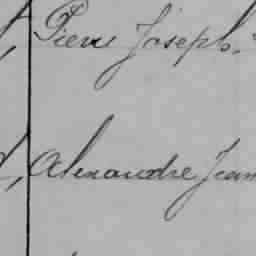 Pierre Joseph
Alexandre Jean